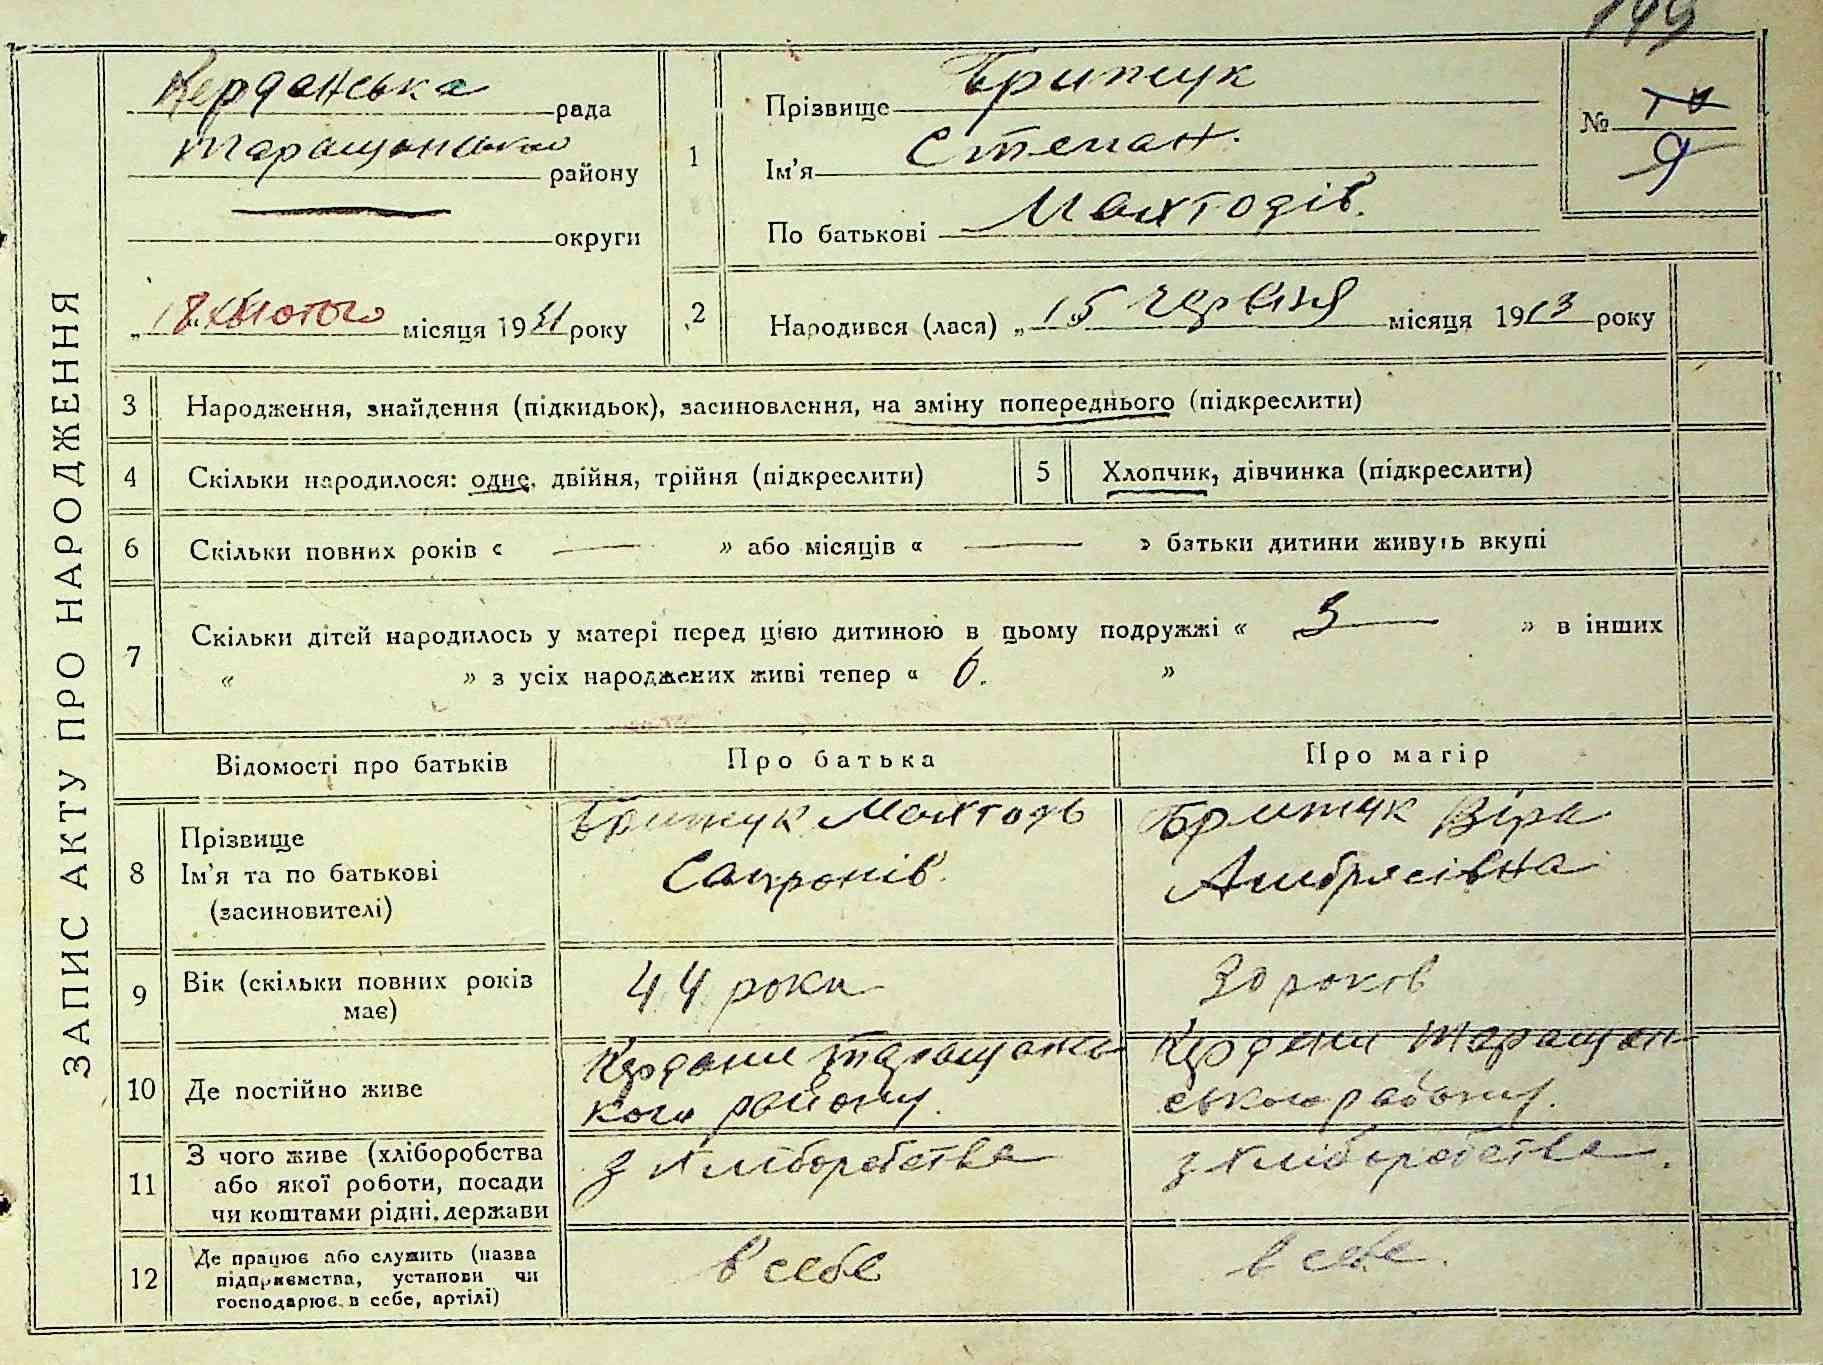 149
ЗАПИС АКТУ ПРО НАРОДЖЕННЯ
Керданська рада
Таращанського району
округи
„18" лютого місяця 1931 року
1
Прізвище Брижук
Ім'я Степан.
По батькові Махтодів.
№ 10
9
2 Народився (лася) „15" червня місяця 1913 року
3 Народження, знайдення (підкидьок), засиновлення, на зміну попереднього (підкреслити)
4 Скільки народилося: одне, двійня, трійня (підкреслити)
5 Хлопчик, дівчинка (підкреслити)
6 Скільки повних років « — » або місяців « — » батьки дитини живуть вкупі
7 Скільки дітей народилось у матері перед цією дитиною в цьому подружжі « 3 — » в інших
« » з усіх народжених живі тепер « 6. »
Відомості про батьків Про батька Про матір
8 Прізвище
Ім'я та по батькові
(засиновителі)
Брижук Махтодь
Сапронів.
Брижук Віра
Амбросівна
9 Вік (скільки повних років
має)
44 роки
30 років
10 Де постійно живе
Кердани Таращансь
кого району.
Кердани Таращан-
ського району.
11 З чого живе (хліборобства
або якої роботи, посади
чи коштами рідні, держави
з хліборобства
з хліборобства.
12 Де працює або служить (назва
підприємства, установи чи
господарює в себе, артілі)
в себе
в себе.